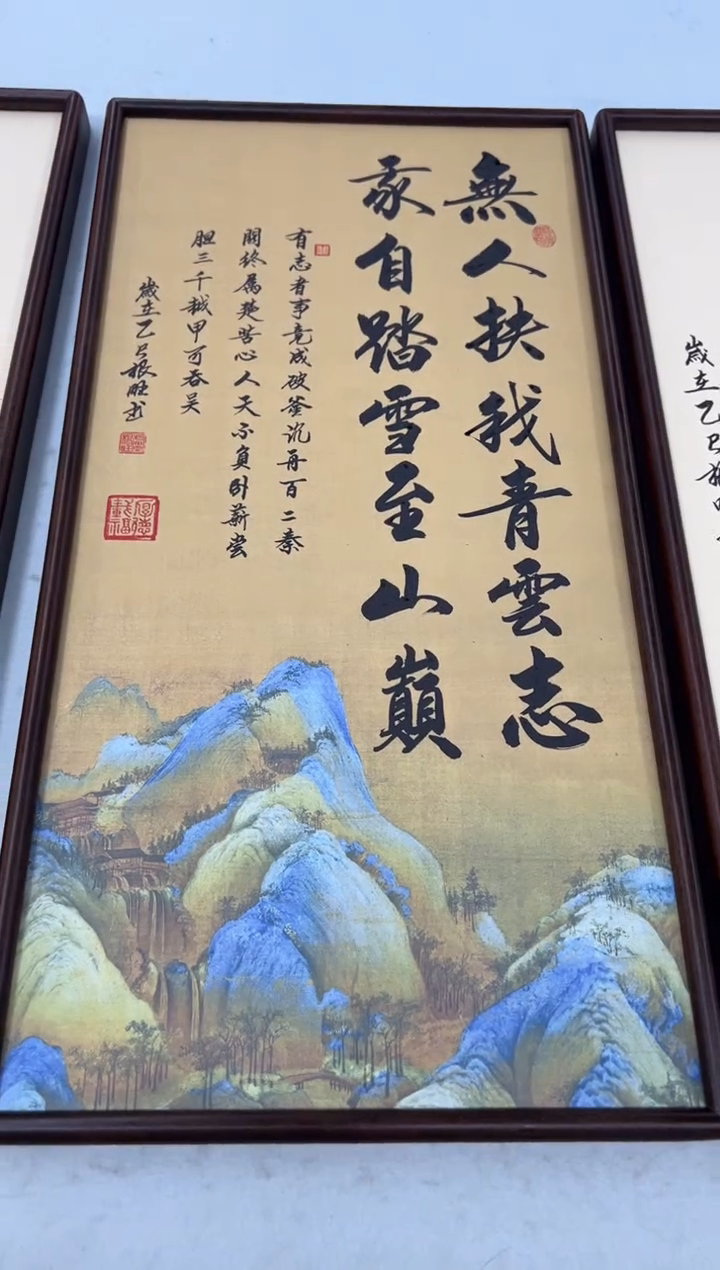 無人扶我青雲志
我自踏雪至山巔
有志者事竟成破釜沉舟百二秦
關終屬楚苦心人天不負卧薪尝
胆三千越甲可吞吴
歲在乙巳根旺书
厚德載福
歲在乙巳根旺